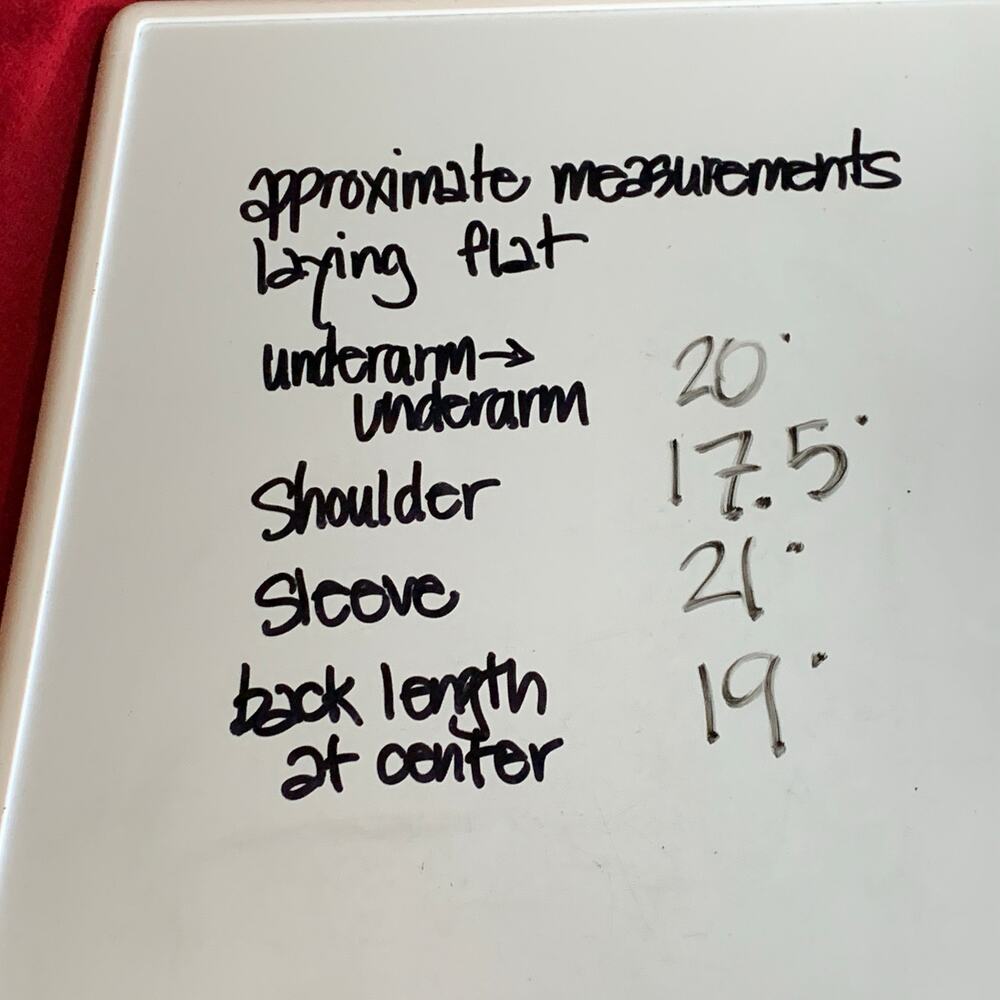 approximate measurements
laying flat
underarm→ 20"
underarm
Shoulder 17.5"
Sleeve 21"
back length 19"
at center